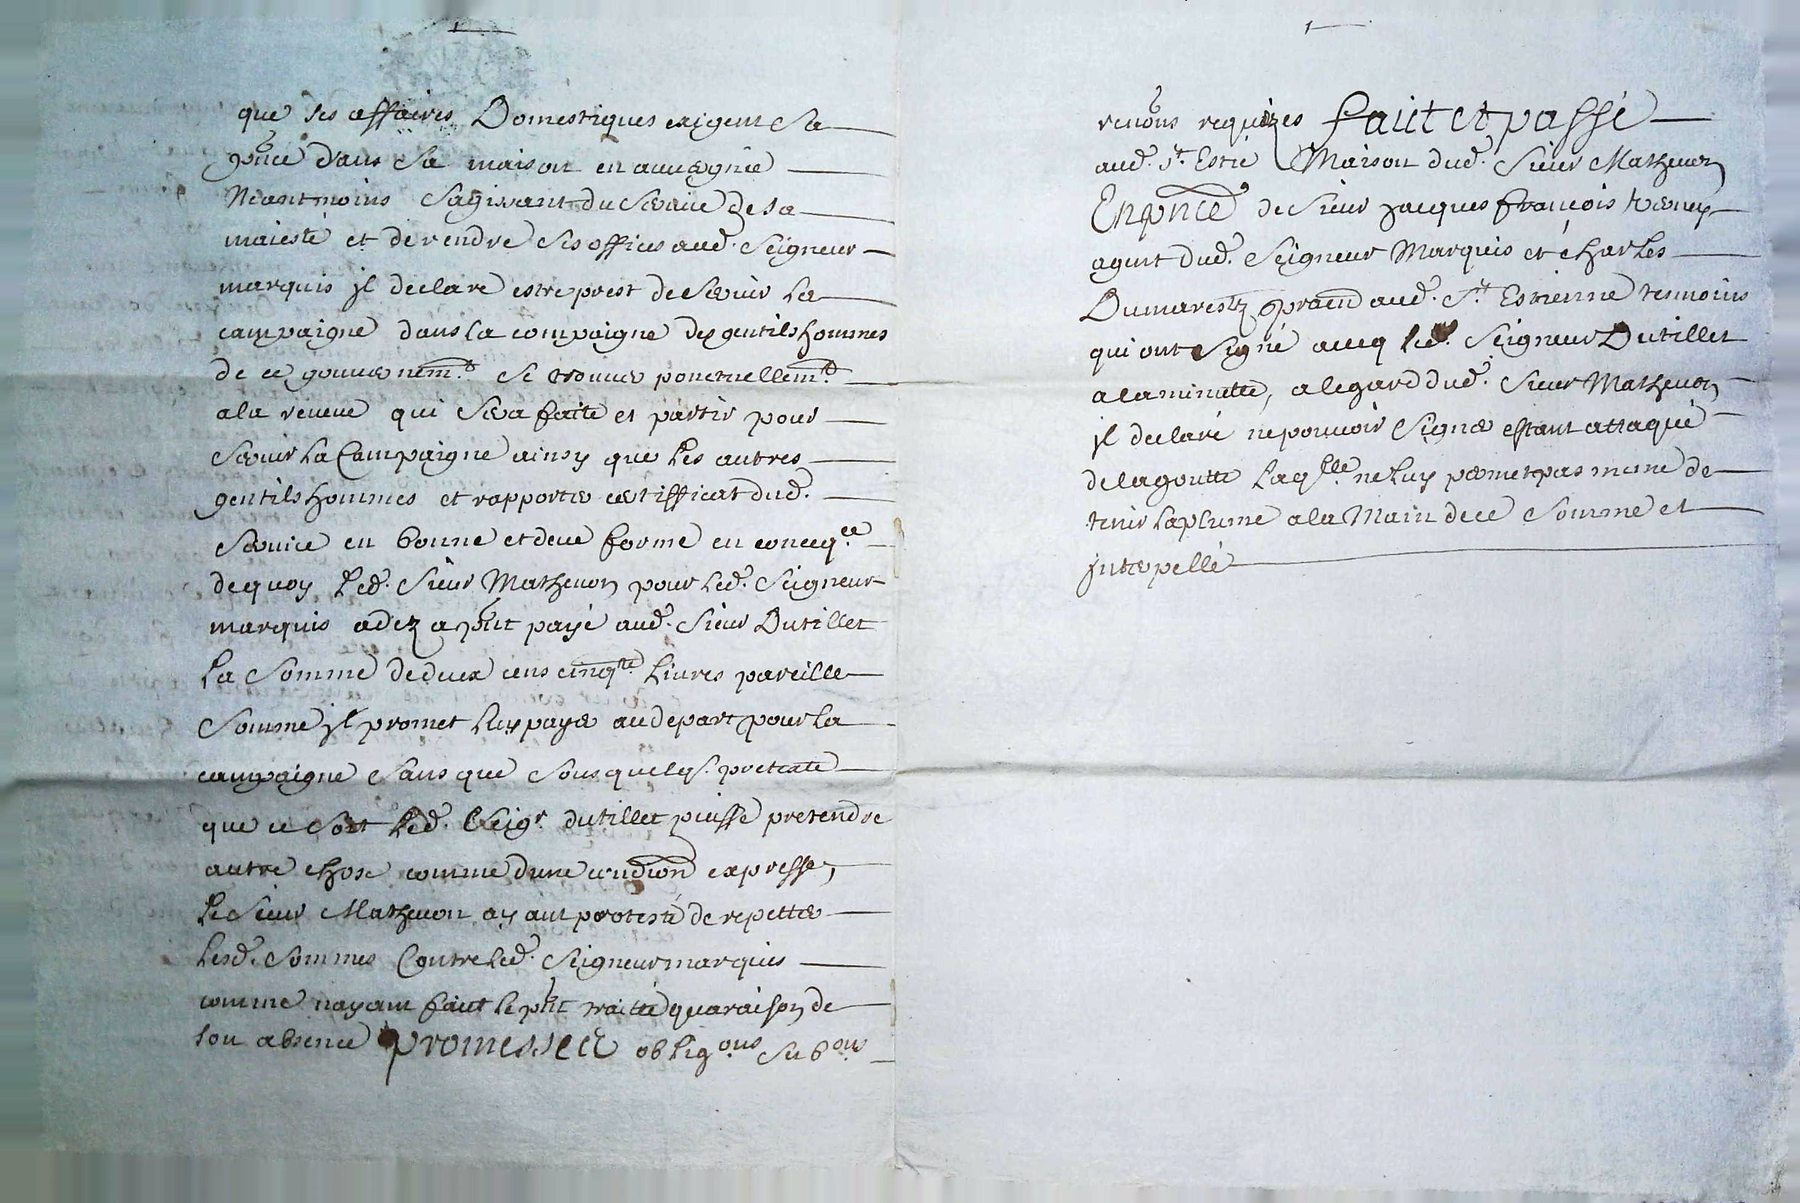 que ses affaires Domestiques exigent Sa
pñce dans Sa maison en auvergnie
Neantmoins Sagissant du Service de sa
maiesté et de rendre Ses offices aud. Seigneur
marquis jl declare estre prest de Servir La
campaigne dans la compaigne des gentilshommes
de ce gouvernemt. Se trouver ponctuellemt.
a la reveue qui Sera faite et partir pour
Servir La Campaigne ainsy que Les autres
gentilshommes et rapporter certifficat dud.
Service en bonne et deue forme en conceqce
de quoy Led. Sieur Mathevon pour Led. Seigneur
marquis adez a pñt payé aud. Sieur Dutillet
La Somme de deux cens cinqte. Livres pareille
Somme jl promet Luy payer au depart pour La
campaigne Sans que Sous quelq. pretexte
que ce Soit Led. Seigr dutillet puisse pretendre
autre chose comme dune condion expresse,
Le Sieur Mathevon ayant protesté de repetter
Lesd. Sommes Contre Led. Seigneur marquis
comme nayant faict Le pñt traitté qua raison de
son absence promesses obligons Subons
renons requizes faict et passé
aud. St. Estie Maison dud. Sieur Mathevon
En pñce de Sieur Jacques françois
agent dud. Seigneur Marquis et Charles
Dumarestz praen aud. St. Estienne tesmoins
qui ont Signé avecq Led. Seigneur Dutillet
a la minutte, a legard dud. Sieur Mathevon
jl declaré ne pouvoir Signer estant attaqué
de la goutte Laqlle. ne Luy permet pas mesme de
tenir La plume a la Main de ce Sommé et
jnterpellé